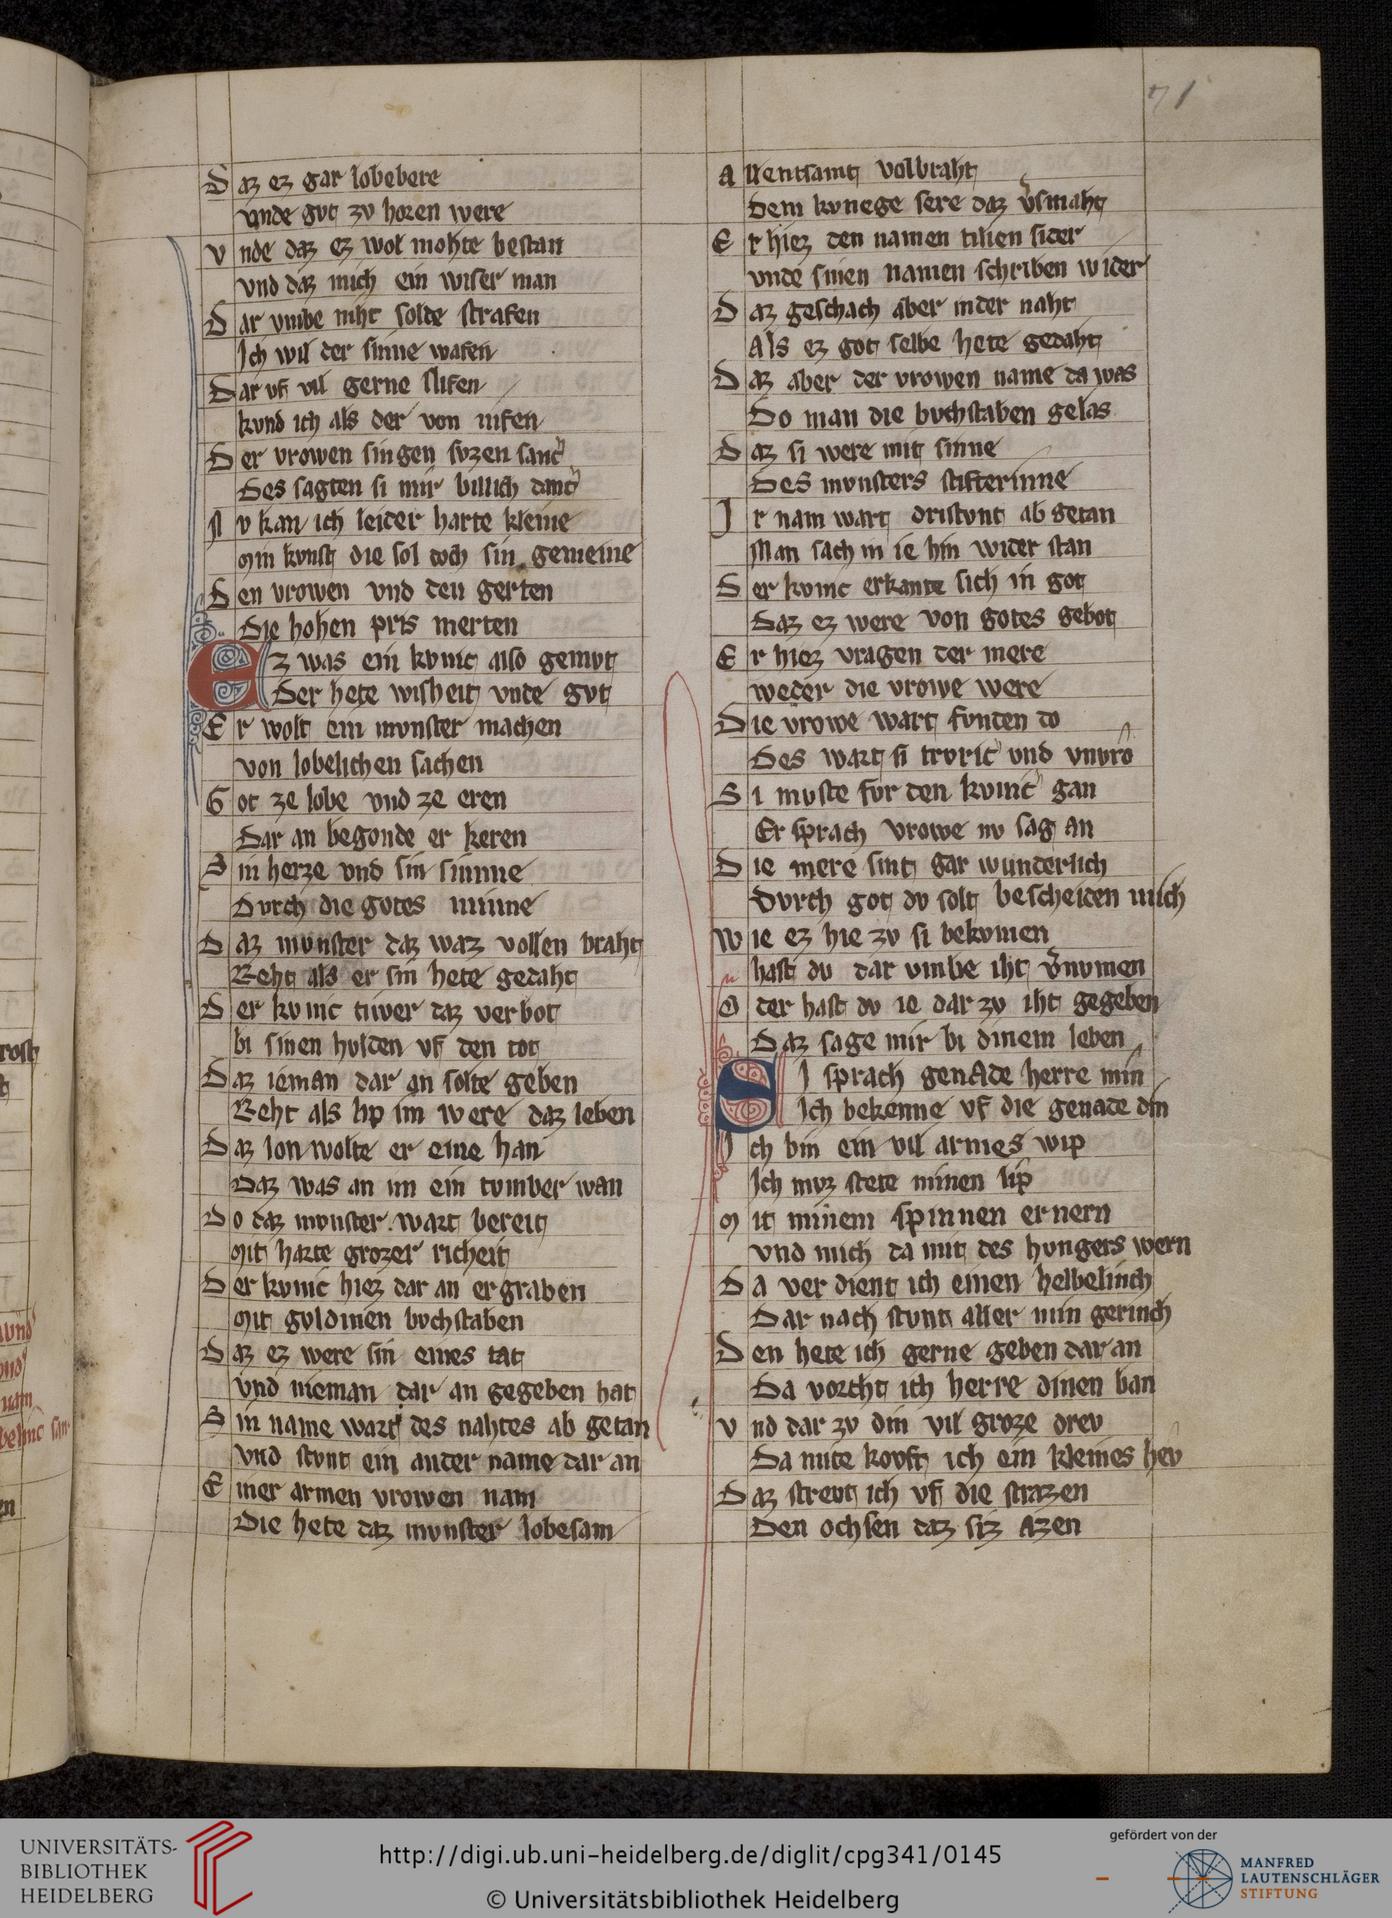 71
Daz ez gar lobebere
vnde gvt zv horen were
Vnde daz ez wol mohte bestan
vnd daz mich ein wiser man
Dar vmbe niht solde strafen
Ich wil der sinne wafen
Dar vf vil gerne slifen
kvnd ich als der von nifen
Der vrowen singen svzen sanc
Des sagten si mir billich danc
Nv kan ich leider harte kleine
Min kvnst die sol doch sin gemeine
Den vrowen vnd den gerten
Die hohen pris merten
Ez was ein kvnic also gemvt
Der hete wisheit vnde gvt
Er wolt ein mvnster machen
von lobelichen sachen
Got ze lobe vnd ze eren
Dar an begonde er keren
Sin herze vnd sin sinne
Dvrch die gotes minne
Daz mvnster daz waz vollen braht
Reht als er sin hete gedaht
Der kvnic tiwer daz verbot
bi sinen hvlden vf den tot
Daz ieman dar an solte geben
Reht als lip im were daz leben
Daz lon wolte er eine han
Daz was an im ein tvmber wan
Do daz mvnster wart bereit
Mit harte grozer richeit
Der kvnic hiez dar an ergraben
Mit gvldinen bvchstaben
Daz ez were sin eines tat
Vnd nieman dar an gegeben hat
Sin name wart des nahtes ab getan
Vnd stvnt ein ander name dar an
Einer armen vrowen nam
Die hete daz mvnster lobesam
Allentsamt volbraht
Dem kvnege sere daz v̾smaht
Er hiez den namen tilien sider
vnde sinen namen schriben wider
Daz geschach aber in der naht
Als ez got selbe hete gedaht
Daz aber der vrowen name da was
Do man die bvchstaben gelas
Daz si were mit sinne
Des mvnsters stifterinne
Ir nam wart dristvnt ab getan
Man sach in ie hin wider stan
Der kvnic erkante sich in got
Daz ez were von gotes gebot
Er hiez vragen der mere
weder die vrowe were
Die vrowe wart fvnden do
Des wart si trvric vnd vnvro
Si mvste fvr den kvnic gan
Er sprach vrowe nv sag an
Die mere sint gar wunderlich
Dvrch got dv solt bescheiden mich
Wie ez hie zv si bekvmen
hast dv dar vmbe iht v̾nvmen
Oder hast dv ie dar zv iht gegeben
Daz sage mir bi dinem leben
Si sprach genade herre min
Ich bekenne vf die genade din
Ich bin ein vil armes wip
Ich mvz stete minen lip
Mit minem spinnen ernern
vnd mich da mit des hvngers wern
Da ver dient ich einen helbelinch
Dar nach stvnt aller min gerinch
Den hete ich gerne geben dar an
Da vorcht ich herre dinen ban
Vnd dar zv din vil groze drev
Da mite kovft ich ein kleines hev
Daz strevt ich vf die strazen
Den ochsen daz siz azen
UNIVERSITÄTS-
BIBLIOTHEK
HEIDELBERG
http://digi.ub.uni-heidelberg.de/diglit/cpg341/0145
© Universitätsbibliothek Heidelberg
gefördert von der
MANFRED
LAUTENSCHLÄGER
STIFTUNG